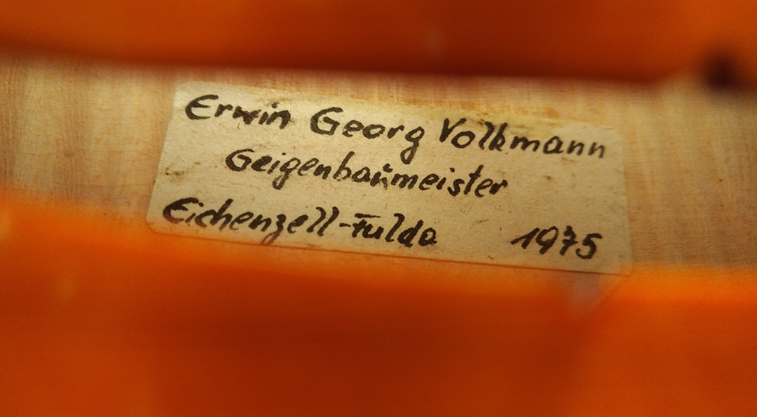 Erwin Georg Volkmann
Geigenbaumeister
Eichenzell-Fulda 1975